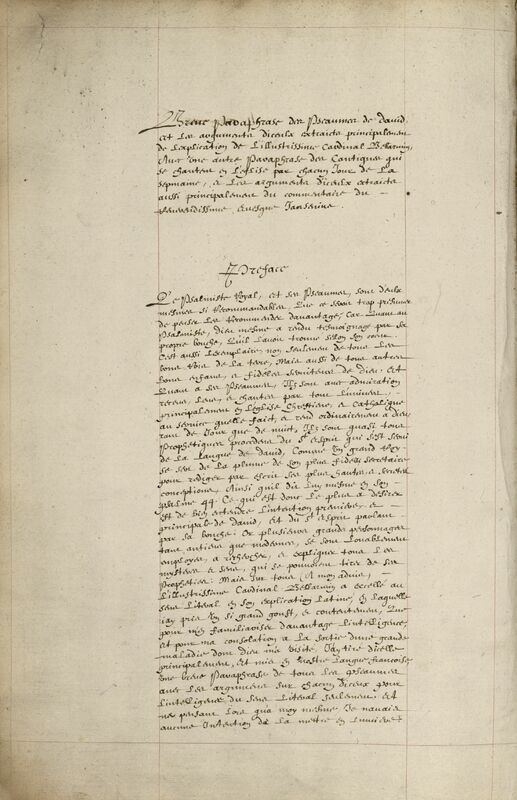 Breve Paraphrase des Pseaumes de david,
et Les argumentz diceulx extraictz principalement
de Lexplication de L'illustrissime Cardinal Bellarmin,
Avec une autre Paraphrase des Cantiques qui
se chantent en L'eglise par chacun Jour de La
sepmaine, et Les argumentz diceulx extraictz
aussi principalement du commentaire du
Reverendissime Evesque Jansenius.
Preface
Le Psalmiste Royal, et ses Pseaumes, sont deulx
mesmes si Recommandables, Que ce seroit trop presumer
de penser Les Recommender davantage, Car Quant au
Psalmiste, dieu mesme a rendu tesmoignage par sa
propre bouche, Quil Lavoit trouvé selon son coeur
C'est aussi Lexemplaire non seulement de tous Les
bons Rois de La terre, Mais aussi de tous autres
bons enfans, et fideles serviteurs de dieu. Et
Quant a ses Pseaumes, Ilz sont avec admiration
receus, Leus, et chantez par tout Lunivers,
principalement en L'eglise Chrestienne, et Catholique
au service quelle faict, et rend ordinairement a dieu
tant de Jour que de nuict, Ilz sont quasi tous
Prophetiques procedans du St esprit qui s'est servi
de La Langue de david, Comme Un grand Roy
se sert de La plume de son plus fidele secretaire
pour rediger par escrit ses plus haultes, et secretes
conceptions, Ainsi quil dit Luy mesme en son
psalme 44. Ce qui est donc Le plus a desirer
est de bien entendre L'intention premiere, et
principale de David, Et du St esprit parlant
par sa bouche: Or plusieurs grands personnages
tant antiens que modernes, se sont Louablement
employez, a rechercher, et expliquer tous Les
mysteres et sens, qui se pouvoient tirer de ses
Propheties. Mais sur tous (A mon advis,
L'illustrissime Cardinal Bellarmin a excellé au
sens Literal en son explication Latine, En Laquelle
iay pris Un si grand goust, et contentement, Que
pour m'en familiariser davantage L'intelligence,
et pour ma consolation a La sortie d'une grande
maladie dont dieu m'a visité, Jay tiré dicelle
principalement, Et mis en Nostre Langue francoise
Une breve Paraphrase de tous Les Pseaumes
avec Les argumens sur chacun diceux pour
L'intelligence du sens Literal seulement, Et
ne pensant Lors qua moy mesme Je n'avois
aucune Intention de La mettre en Lumiere